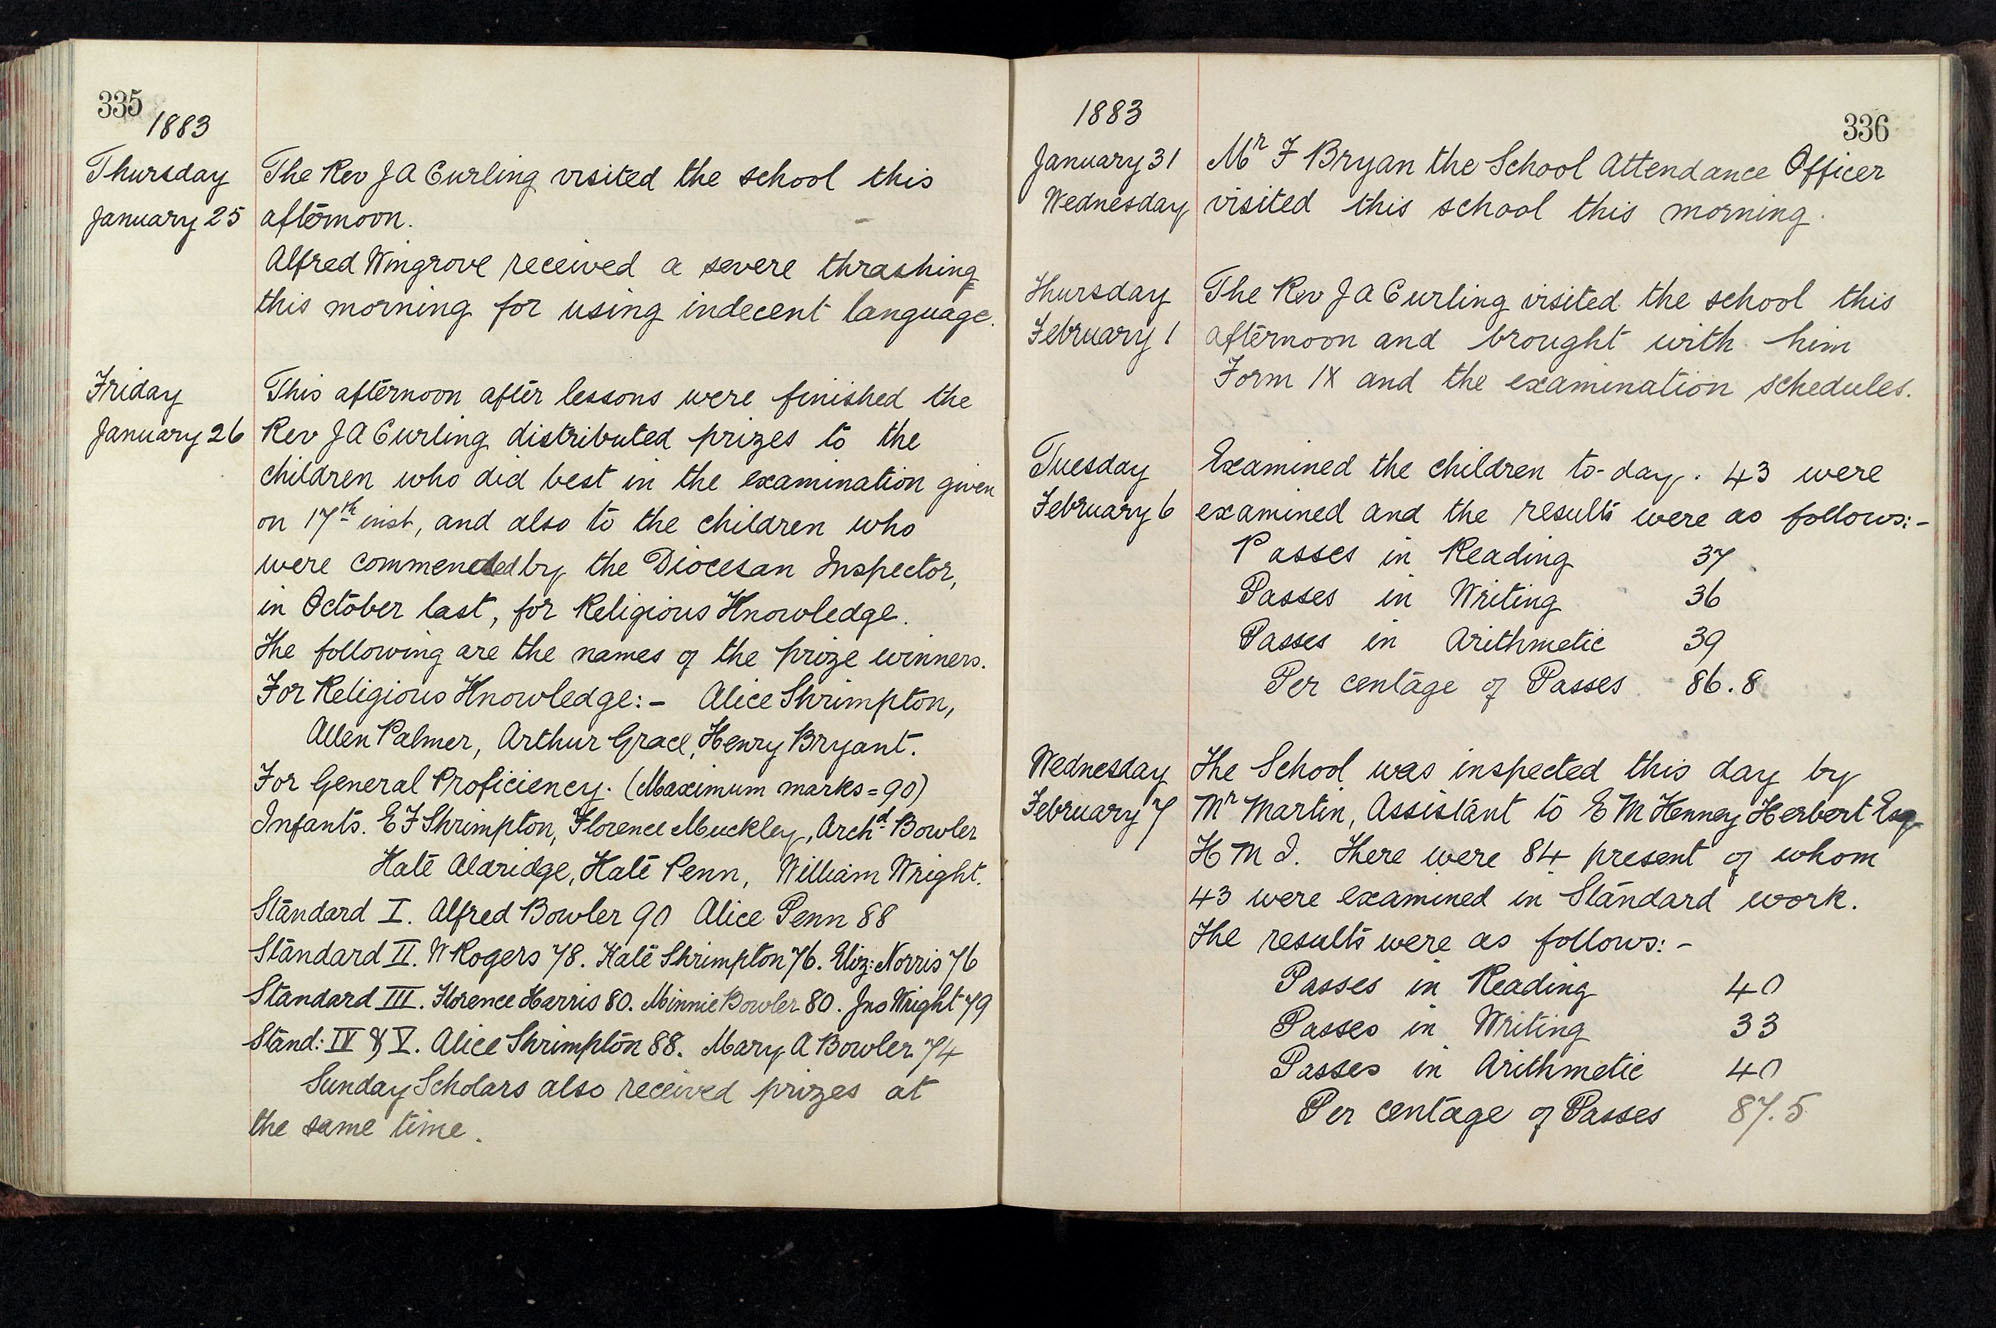 335
1883
Thursday
January 25
The Rev J A Curling visited the school this
afternoon.
Alfred Wingrove received a severe thrashing
this morning for using indecent language.
Friday
January 26
This afternoon after lessons were finished the
Rev J A Curling distributed prizes to the
children who did best in the examination given
on 17th inst, and also to the children who
were commended by the Diocesan Inspector,
in October last, for Religious Knowledge.
The following are the names of the prize winners.
For Religious Knowledge:- Alice Shrimpton,
Allen Palmer, Arthur Grace, Henry Bryant.
For General Proficiency. (Maximum marks = 90)
Infants. E F Shrimpton, Florence Muckley, Archd Bowler
Kate Aldridge, Kate Penn, William Wright.
Standard I. Alfred Bowler 90 Alice Penn 88
Standard II. W Rogers 78. Kate Shrimpton 76. Eliz: Norris 76
Standard III. Florence Harris 80. Minnie Bowler 80. Jno Wright 79
Stand: IV & V. Alice Shrimpton 88. Mary A Bowler 74
Sunday Scholars also received prizes at
the same time.
1883
336
January 31
Wednesday
Mr F Bryan the School Attendance Officer
visited this school this morning.
Thursday
February 1
The Rev J A Curling visited the school this
afternoon and brought with him
Form IX and the examination schedules.
Tuesday
February 6
Examined the children to-day. 43 were
examined and the results were as follows:-
Passes in Reading 37
Passes in Writing 36
Passes in Arithmetic 39
Per centage of Passes 86.8
Wednesday
February 7
The School was inspected this day by
Mr Martin, Assistant to E M Kenney Herbert Esq
H M I. There were 84 present of whom
43 were examined in Standard work.
The results were as follows:-
Passes in Reading 40
Passes in Writing 33
Passes in Arithmetic 40
Per centage of Passes 87.5